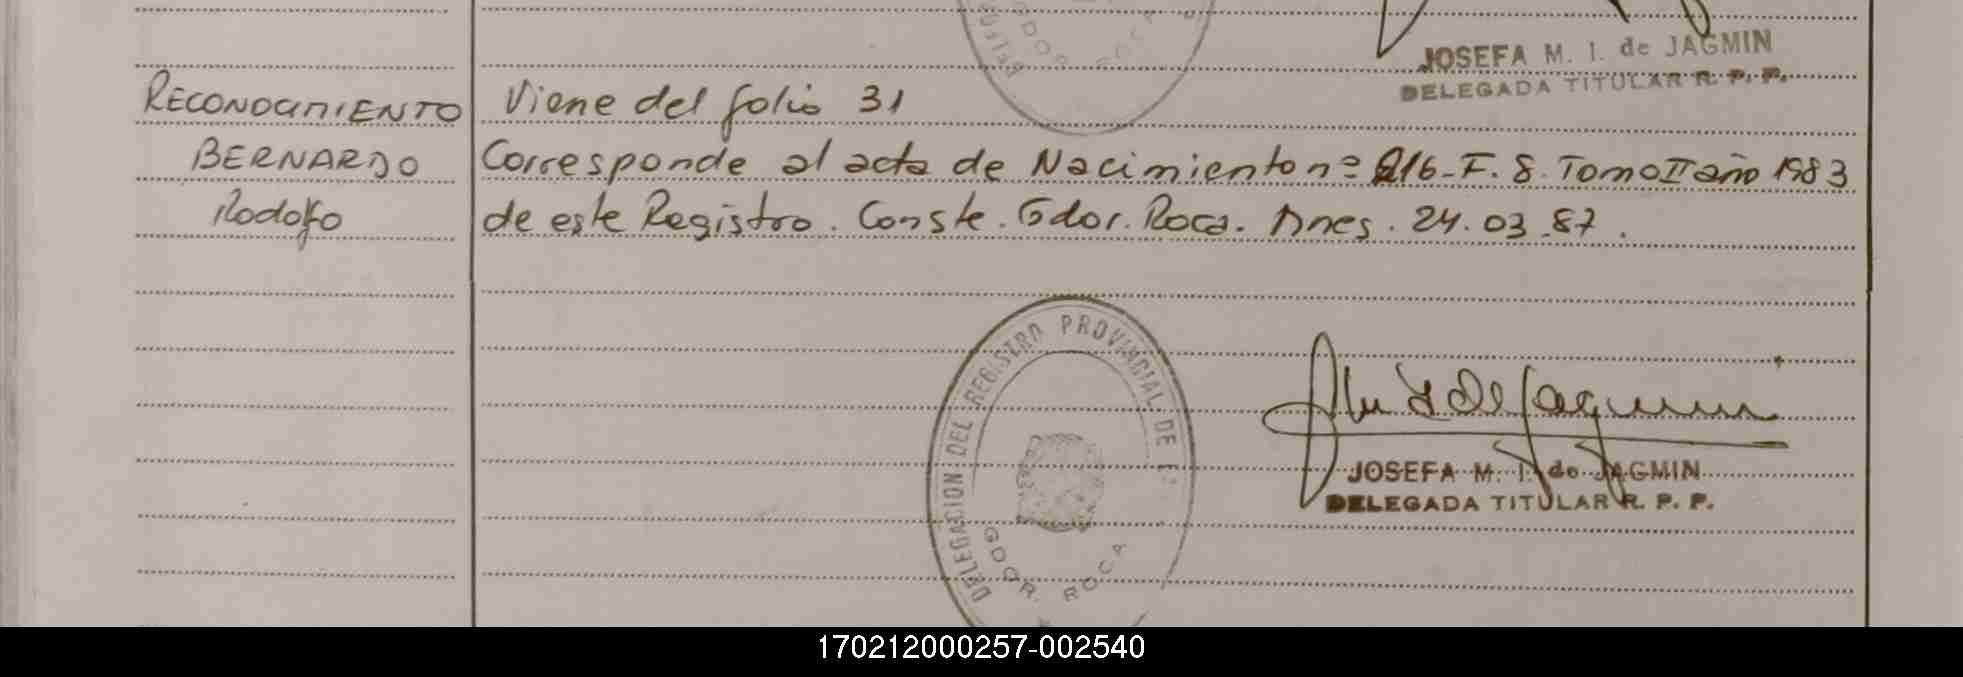 JOSEFA M. I. de JAGMIN
DELEGADA TITULAR R. P. P.
RECONOCIMIENTO
BERNARDO
Rodolfo
Viene del folio 31
Corresponde al acta de Nacimiento nº 216-F. 8. Tomo II año 1983
de este Registro. Conste. Gdor. Roca. Mnes. 24.03.87.
DELEGACION DEL REGISTRO PROVINCIAL DE
GDOR. ROCA
JOSEFA M. I. de JAGMIN
DELEGADA TITULAR R. P. P.
170212000257-002540